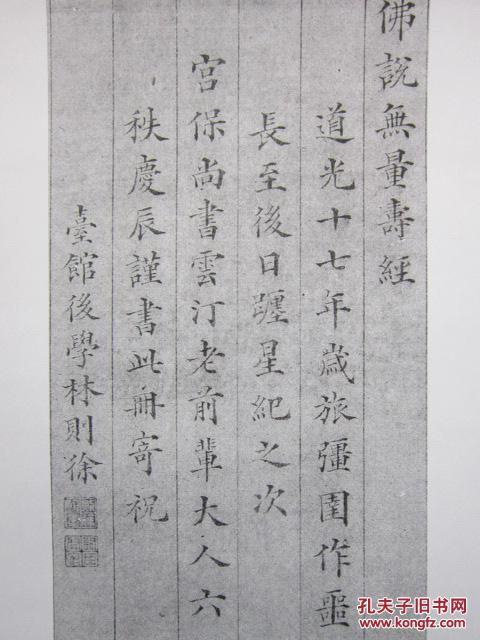 佛說無量壽經
道光十七年歲旅彊圉作噩
長至後日躔星紀之次
宮保尚書雲汀老前輩大人六
秩慶辰謹書此冊寄祝
臺館後學林則徐
孔夫子旧书网
www.kongfz.com